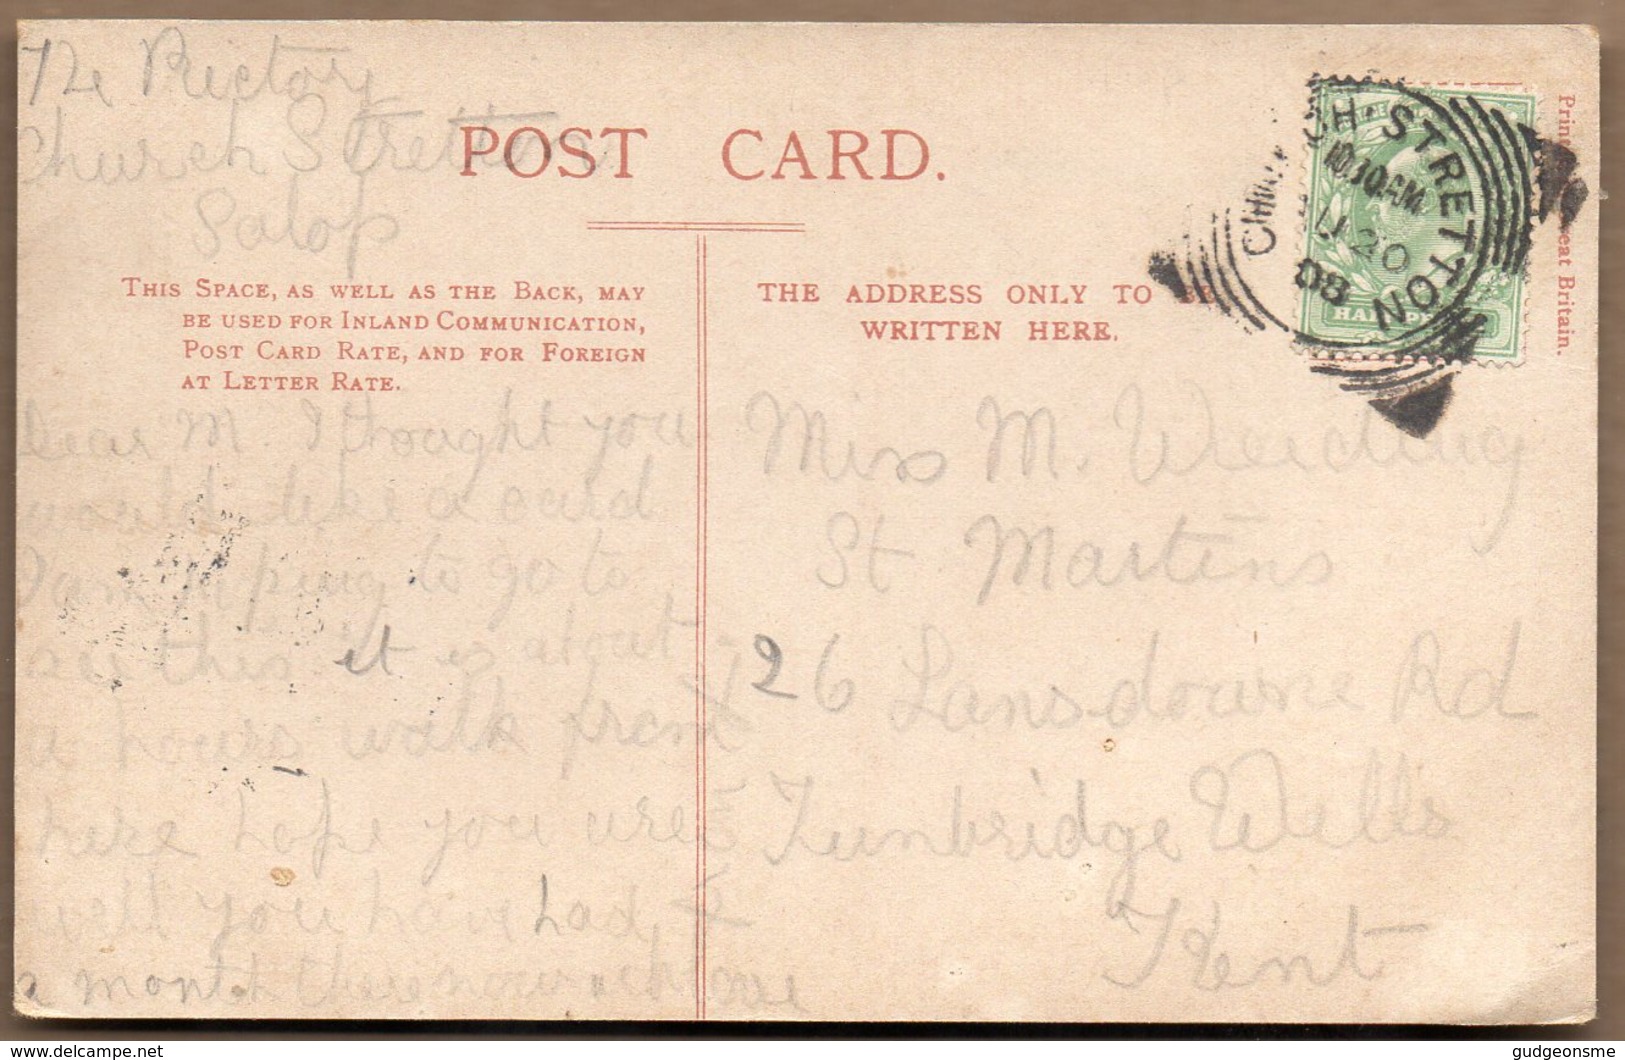 The Rectory
Church Stretton
Salop
POST CARD.
THIS SPACE, AS WELL AS THE BACK, MAY
BE USED FOR INLAND COMMUNICATION,
POST CARD RATE, AND FOR FOREIGN
AT LETTER RATE.
THE ADDRESS ONLY TO BE
WRITTEN HERE.
CHURCH·STRETTON
10.30AM
20
08
HALFPENNY
Dear M. I thought you
would like a card
I am hoping to go to
see this it is about
a hours walk from
here hope you are
well you have had
a month there now
Miss M.
St Martins
26 Lansdowne Rd
Tunbridge Wells
Kent
delcampe.net
gudgeonsme